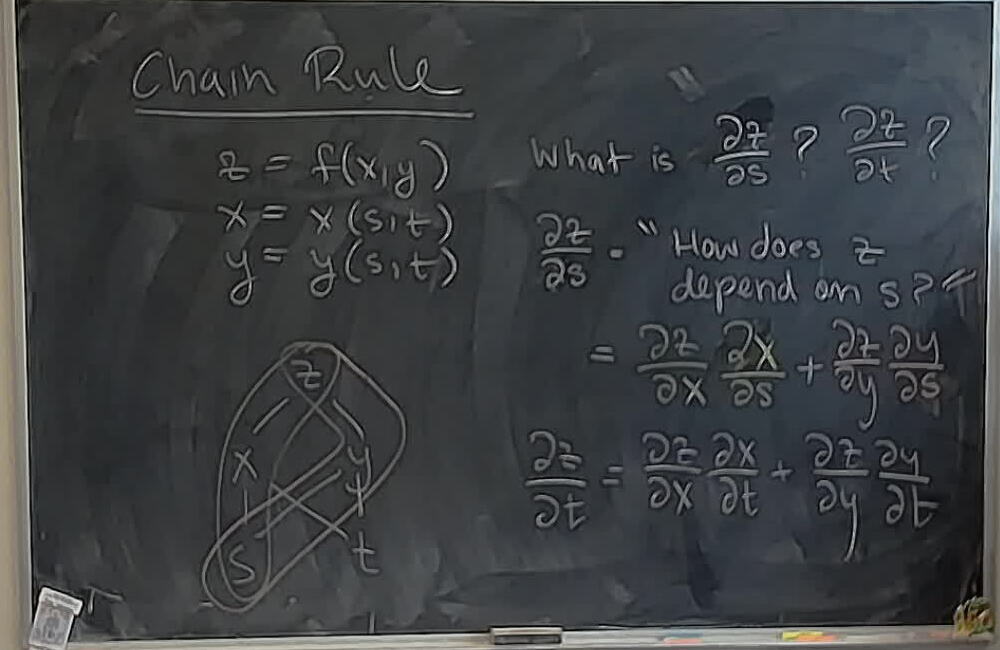 Chain Rule
z = f(x,y)
x = x(s,t)
y = y(s,t)
z
x y
s t
What is ∂z/∂s ? ∂z/∂t ?
∂z/∂s = "How does z
depend on s?"
= ∂z/∂x ∂x/∂s + ∂z/∂y ∂y/∂s
∂z/∂t = ∂z/∂x ∂x/∂t + ∂z/∂y ∂y/∂t